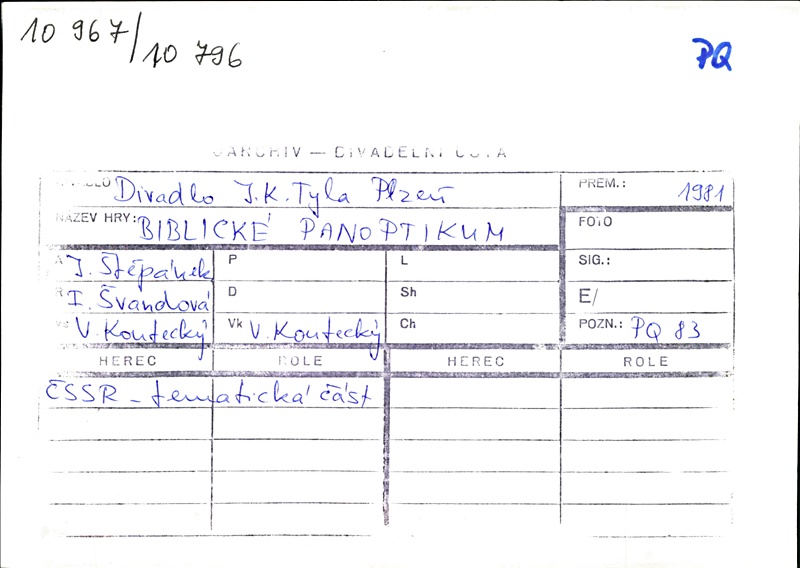 10 967/10 796
PQ
ARCHIV — DIVADELNÍ
Divadlo J.K.Tyla Plzeň
PREM.: 1981
NÁZEV HRY: BIBLICKÉ PANOPTIKUM
FOTO
A J. Štěpánek P L SIG.:
R I. Švandová D Sh E/
V. Koutecký Vk V. Koutecký Ch POZN.: PQ 83
HEREC ROLE HEREC ROLE
ČSSR - tematická část